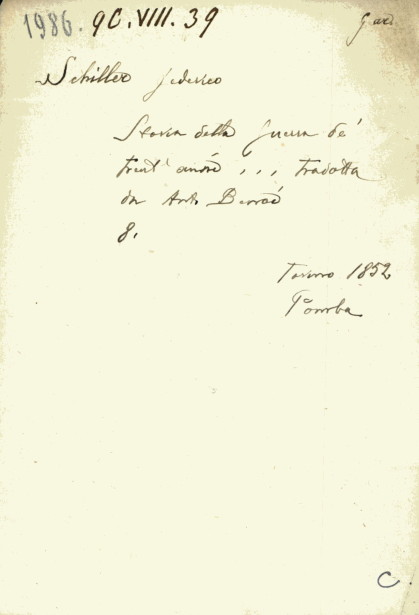 1986. 9C.VIII.39
Schiller Federico
Storia della Guerra de'
trent' anni . . . tradotta
da Ant.
8.
Torino 1852
Pomba
C.